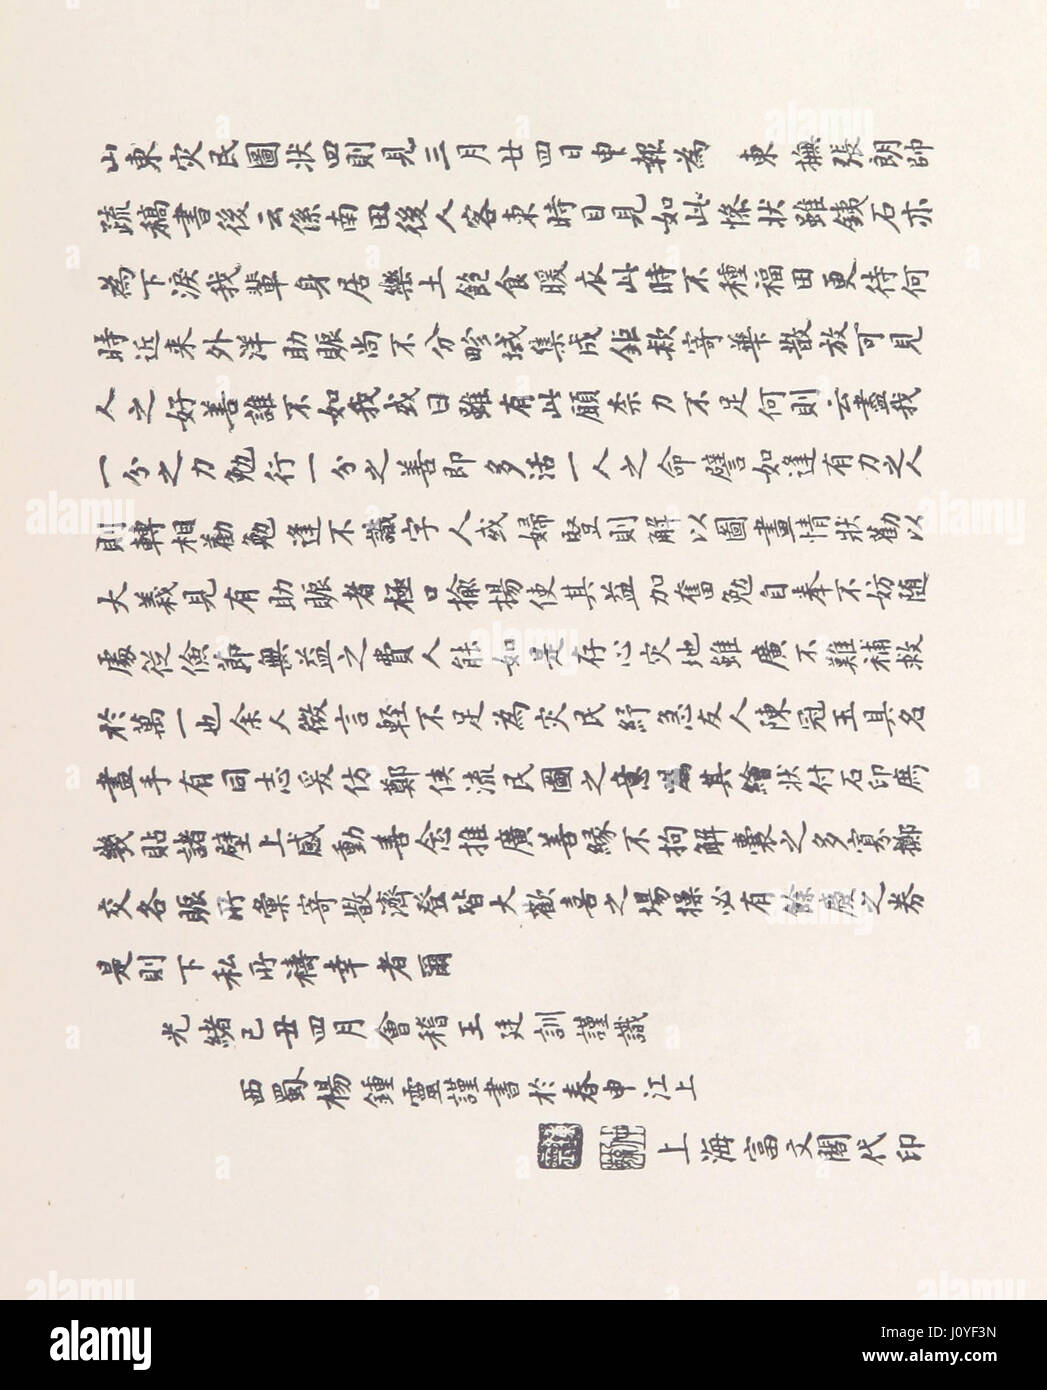 山東灾民圖狀四則見三月廿四日申報為 東撫張朗帥
疏稿書後云係南田後人客東時目見如此慘狀雖鐵石亦
為下淚我輩身居樂土飽食暖衣此時不種福田更待何
時近来外洋助賑尚不分畛域集成鉅款寄華散放可見
人之好善誰不如我或曰雖有此願柰力不足何則云盡我
一分之力勉行一分之善即多活一人之命譬如逢有力之人
則轉相勸勉逢不識字人或婦豎則解以圖畫情狀勸以
大義見有助賑者極口揄揚使其益加奮勉自奉不妨随
處從儉節無益之費人能如是存心灾地雖廣不難補救
於萬一也余人微言輕不足為灾民紓急友人陳冠玉具名
畫手有同志爰仿鄭俠流民圖之意 其繪狀付石印庶
幾貼諸壁上感動善念推廣善緣不拘解囊之多寡擲
交各賑所彙寄散濟登皆大歡喜之場操必有餘慶之券
是則下私所禱幸者爾
光緒己丑四月會稽王廷訓謹識
西蜀楊鍾靈謹書於春申江上
上海富文閣代印
alamy
J0YF3N
www.alamy.com